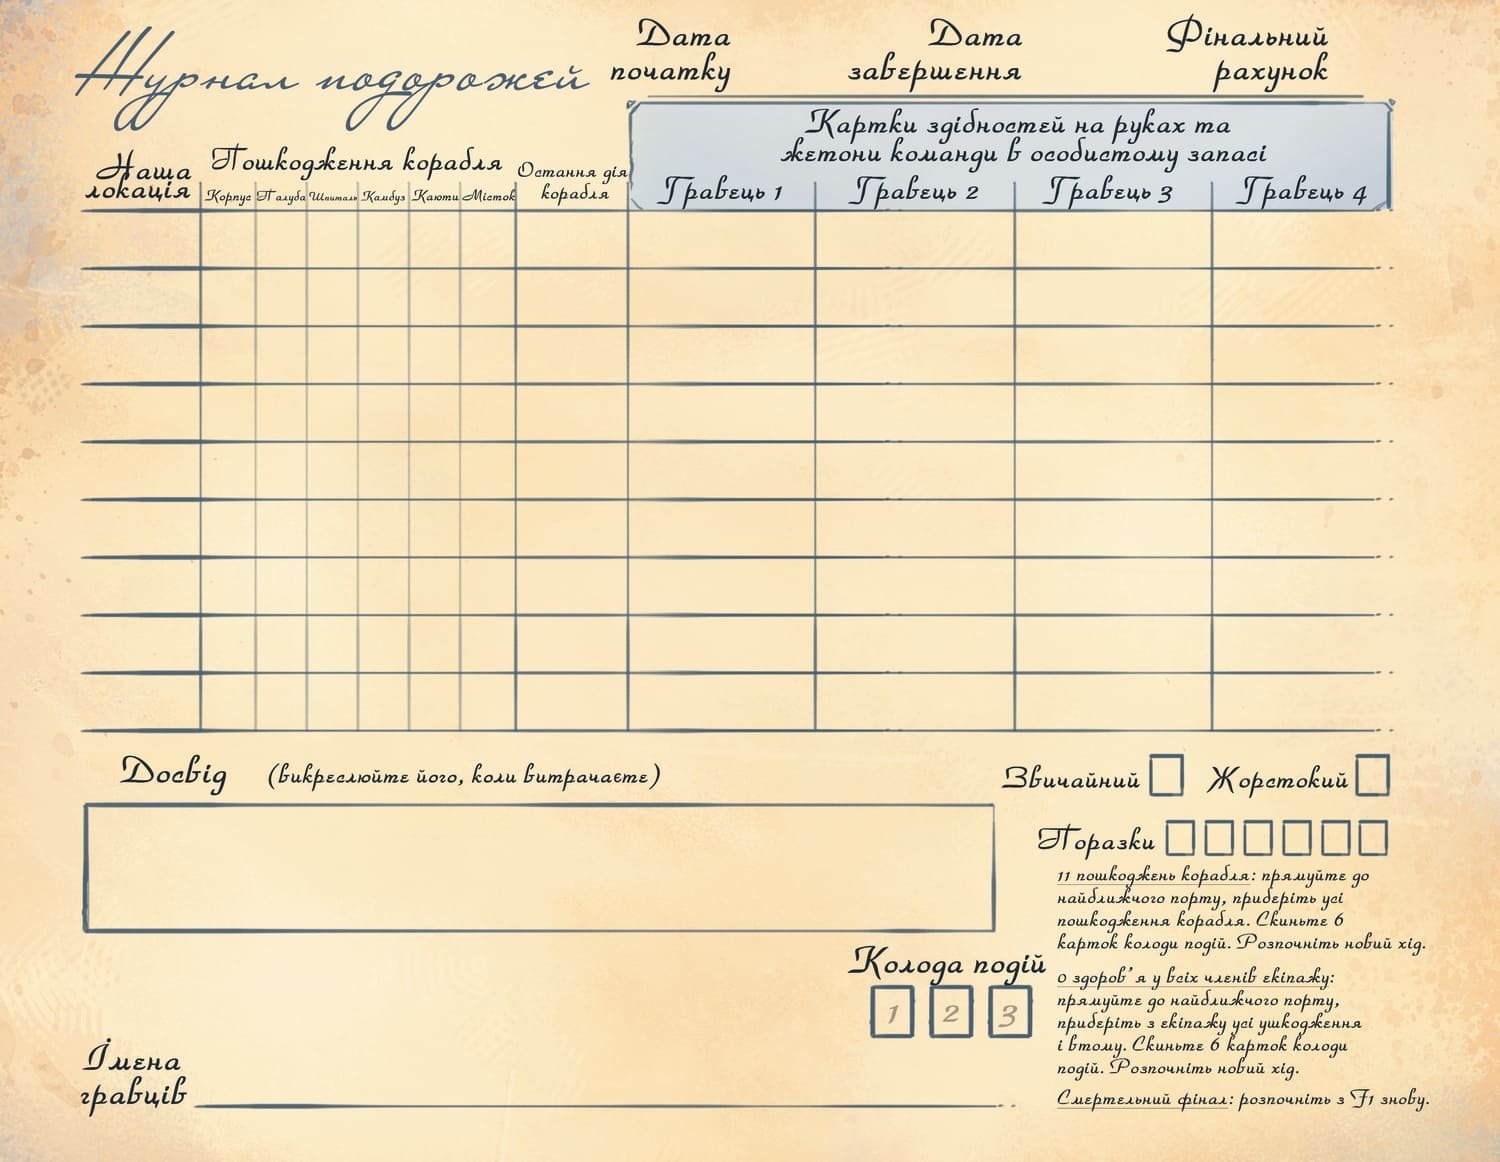 Журнал подорожей
Дата
початку
Дата
завершення
Фінальний
рахунок
Картки здібностей на руках та
жетони команди в особистому запасі
Наша
локація
Пошкодження корабля
Корпус Палуба Шпиталь Камбуз Каюти Місток
Остання дія
корабля
Гравець 1 Гравець 2 Гравець 3 Гравець 4
Досвід (викреслюйте його, коли витрачаєте)
Звичайний Жорстокий
Поразки
11 пошкоджень корабля: прямуйте до
найближчого порту, приберіть усі
пошкодження корабля. Скиньте 6
карток колоди подій. Розпочніть новий хід.
0 здоров'я у всіх членів екіпажу:
прямуйте до найближчого порту,
приберіть з екіпажу усі ушкодження
і втому. Скиньте 6 карток колоди
подій. Розпочніть новий хід.
Смертельний фінал: розпочніть з F1 знову.
Колода подій
1 2 3
Імена
гравців